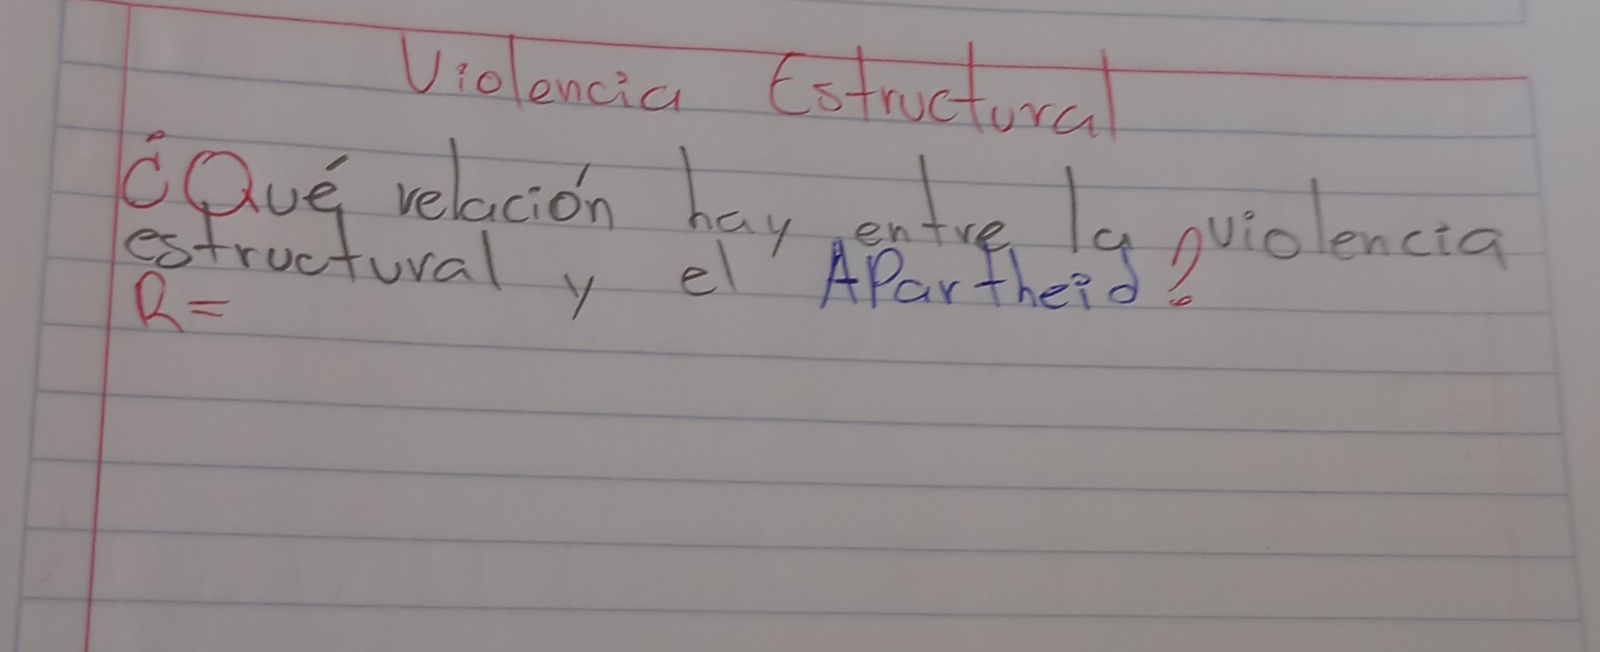 Violencia Estructural
¿Qué relación hay entre la violencia
estructural y el APartheid?
R=